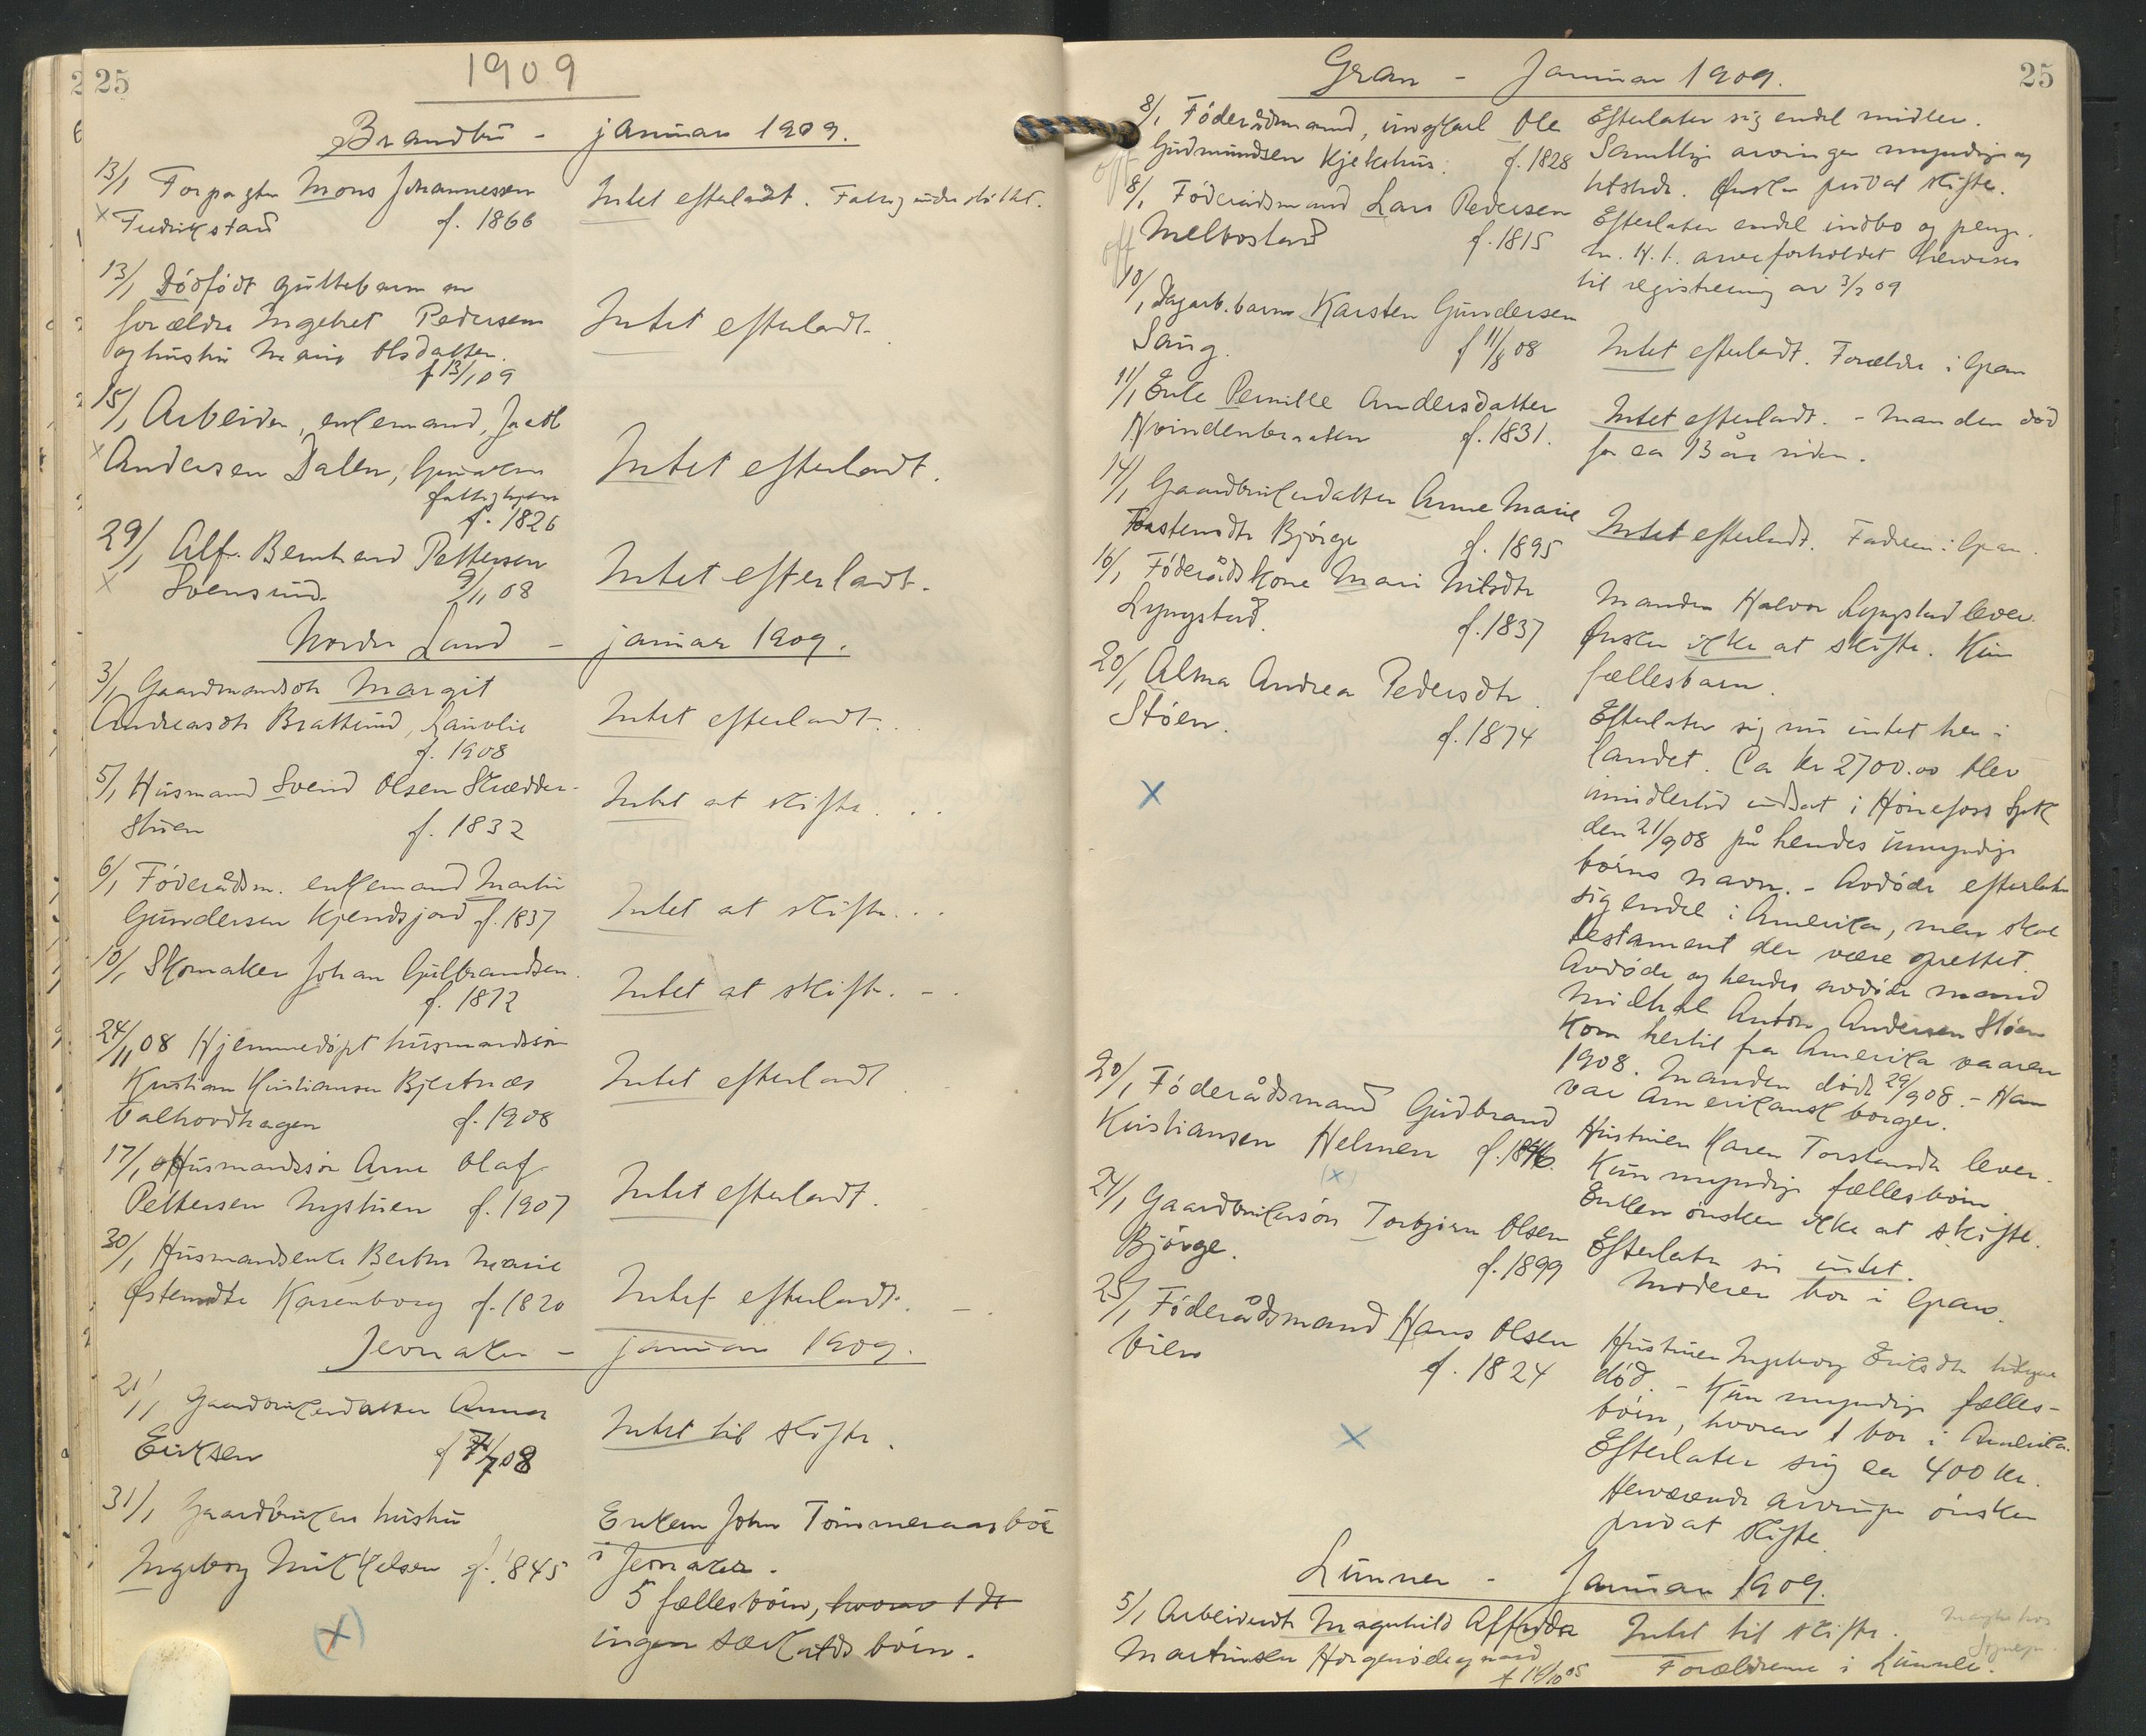 25
1909
Brandbu - januar 1909.
13/1 Forpagter Mons Johannessen
x Fredrikstad f. 1866
Intet efterladt. Fattigunderstøttet.
13/1 Dödfödt guttebarn av
forældre Ingebret Pedersen
og hustru Mari Olsdatter.
f 13/1 09
Intet efterladt.
15/1 Arbeider, enkemand, Jacob
x Andersen Dalen,
fattighjem
f. 1826
Intet efterladt.
29/1 Alf Bernhard Pettersen
x Svensrud 9/11 08
Intet efterladt.
Nordre Land - januar 1909.
3/1 Gaardmandsdtr Margit
Andreasdtr Brattrud, Haavlie
f. 1908
Intet efterladt. . .
5/1 Husmand Svend Olsen Skrædder-
stuen f. 1832
Intet at skifte. . .
6/1 Föderådsm. enkemand Martin
Gundersen Kjendsjord f. 1837
Intet at skifte. . .
10/1 Skomaker Johan Gulbrandsen.
f. 1872
Intet at skifte. - .
24/11 08 Hjemmedöpt husmandssön
Kristian Kristiansen Bjertnæs
Valhovdhagen f. 1908
Intet efterladt
17/1 Husmandssön Arne Olaf
Pettersen Nystuen f. 1907
Intet efterladt.
30/1 Husmandsenke Berthe Marie
Østensdtr Karenborg f. 1820
Intet efterladt. - .
Jevnaker - januar 1909.
21/1 Gaardbrukerdatter Anna
Eriksen f 7/7 08
Intet til skifte.
31/1 Gaardbruker hustru
Ingeborg Mikkelsen f. 1845
(x)
Enkem John Tömmeraas bor
i Jevnaker.
5 fællesbörn, hvorav 1 dr
ingen særkulds börn.
25
Gran - Januar 1909.
8/1 Föderådsmand, ungkarl Ole
Gudmundsen Kjekshus. f. 1828
off
Efterlater sig endel midler.
Samtlige arvinger myndige og
tilstede. Ønsker privat skifte.
8/1 Föderaadsmand Lars Pedersen
Melbostad f. 1815
off
Efterlater endel indbo og penge.
m. H. t. arveforholdet henvises
til registrering av 3/2 09
10/1 Dagarb. barn Karsten Gundersen
Saug. f 11/8 08
Intet efterladt. Forældre i Gran
11/1 Enke Pernille Andersdatter
Hvindenbraaten f. 1831.
Intet efterladt. - Manden död
for ca 13 år siden.
14/1 Gaardbrukerdatter Anne Marie
Torstensdtr Björge f. 1895
Intet efterladt. Fadren i Gran.
16/1 Föderådskone Mari Nilsdtr
Lyngstad. f. 1837
Manden Halvor Lyngstad lever.
Ønsker ikke at skifte. Kun
fællesbarn.
20/1 Alma Andrea Pedersdtr.
Stöen. f. 1874
x
Efterlater sig nu intet her i
landet. Ca kr 2700.00 blev
imidlertid indsat i Hönefoss Spk
den 21/9 08 på hendes umyndige
börns navn. - Avdöde efterlater
sig endel i Amerika, men skal
testament der være oprettet.
Avdöde og hendes avdöde mand
Midhal Anton Andersen Stöen
kom hertil fra Amerika vaaren
1908. Manden döde 29/9 08. - Han
var Amerikansk borger.
20/1 Föderådsmand Gudbrand
Kristiansen Helmen f. 1846.
(x)
Hustruen Karen Torstensdtr lever.
Kun myndige fællesbörn
Enken önsker ikke at skifte.
24/1 Gaardbrukersön Torbjörn Olsen
Björge. f. 1899
Efterlater sig intet.
Moderen bor i Gran.
25/1 Föderådsmand Hans Olsen
Vien f. 1824
x
Hustruen Ingeborg Eriksdtr tidligere
död. - Kun myndige fælles-
börn, hvorav 1 bor i Amerika.
Efterlater sig ca 400 kr.
Herværende arvinger önsker
privat skifte.
Lunner - Januar 1909.
5/1 Arbeiderdtr Magnhild Alfrida
Martinsen
f 14/10 05
Intet til skifte.
Forældrene i Lunner.